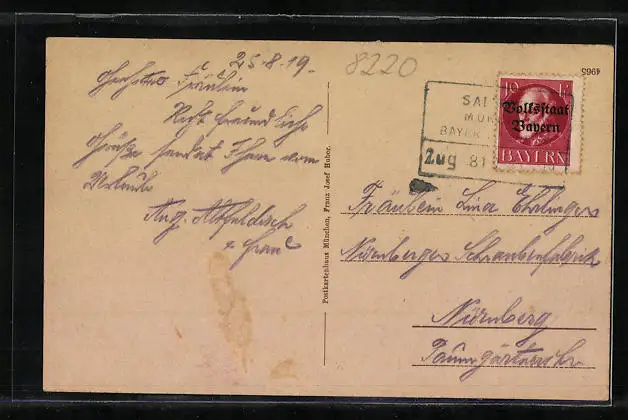 25.8.19.
8220
4965
Geehrtes Fräulein
Recht freundliche
Grüße sendet Ihnen vom
Urlaub
Aug. Altfeldisch
+ Frau
Postkartenhaus München, Franz Josef Huber.
SAL
MÜN
BAYER
Zug 81
10
Volksstaat
Bayern
BAYERN
Fräulein Lina Ehrlinger
Nürnberger Schraubenfabrik
Nürnberg